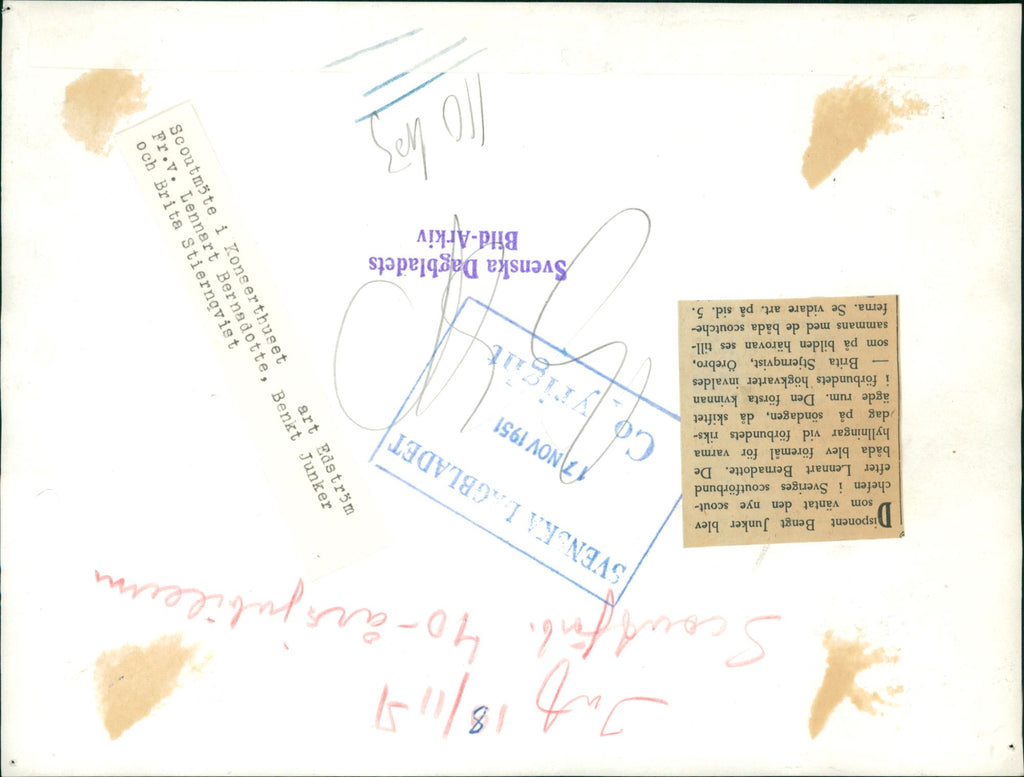 Scoutmöte i Konserthuset
art Edström
Fr.v. Lennart Bernadotte, Benkt Junker
och Brita Stiernqvist
110 403
Svenska Dagbladets
Bild-Arkiv
SVENSKA DAGBLADET
17 NOV 1951
Copyright
Disponent Bengt Junker blev
som väntat den nye scout-
chefen i Sveriges scoutförbund
efter Lennart Bernadotte. De
båda blev föremål för varma
hyllningar vid förbundets riks-
dag på söndagen, då skiftet
ägde rum. Den första kvinnan
i förbundets högkvarter invaldes
— Brita Stjernqvist, Örebro,
som på bilden härovan ses till-
sammans med de båda scoutche-
ferna. Se vidare art. på sid. 5.
18/11 51
Scoutförb. 40-årsjubileum